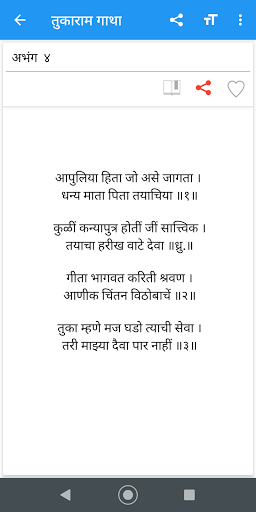 तुकाराम गाथा
अभंग ४
आपुलिया हिता जो असे जागता ।
धन्य माता पिता तयाचिया ॥१॥
कुळीं कन्यापुत्र होतीं जीं सात्त्विक ।
तयाचा हरीख वाटे देवा ॥ध्रु.॥
गीता भागवत करिती श्रवण ।
आणीक चिंतन विठोबाचें ॥२॥
तुका म्हणे मज घडो त्याची सेवा ।
तरी माझ्या दैवा पार नाहीं ॥३॥